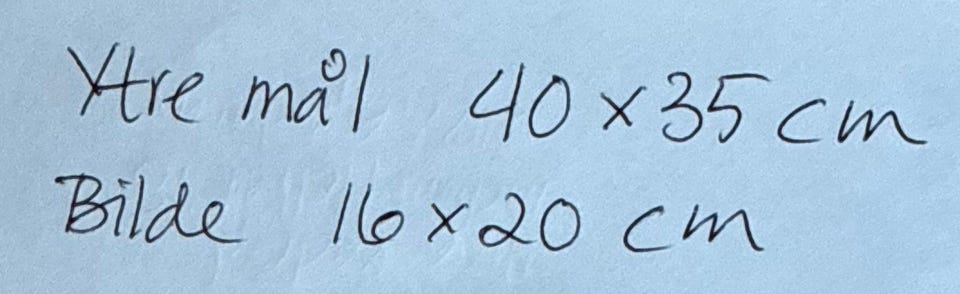 Ytre mål 40 x 35 cm
Bilde 16 x 20 cm